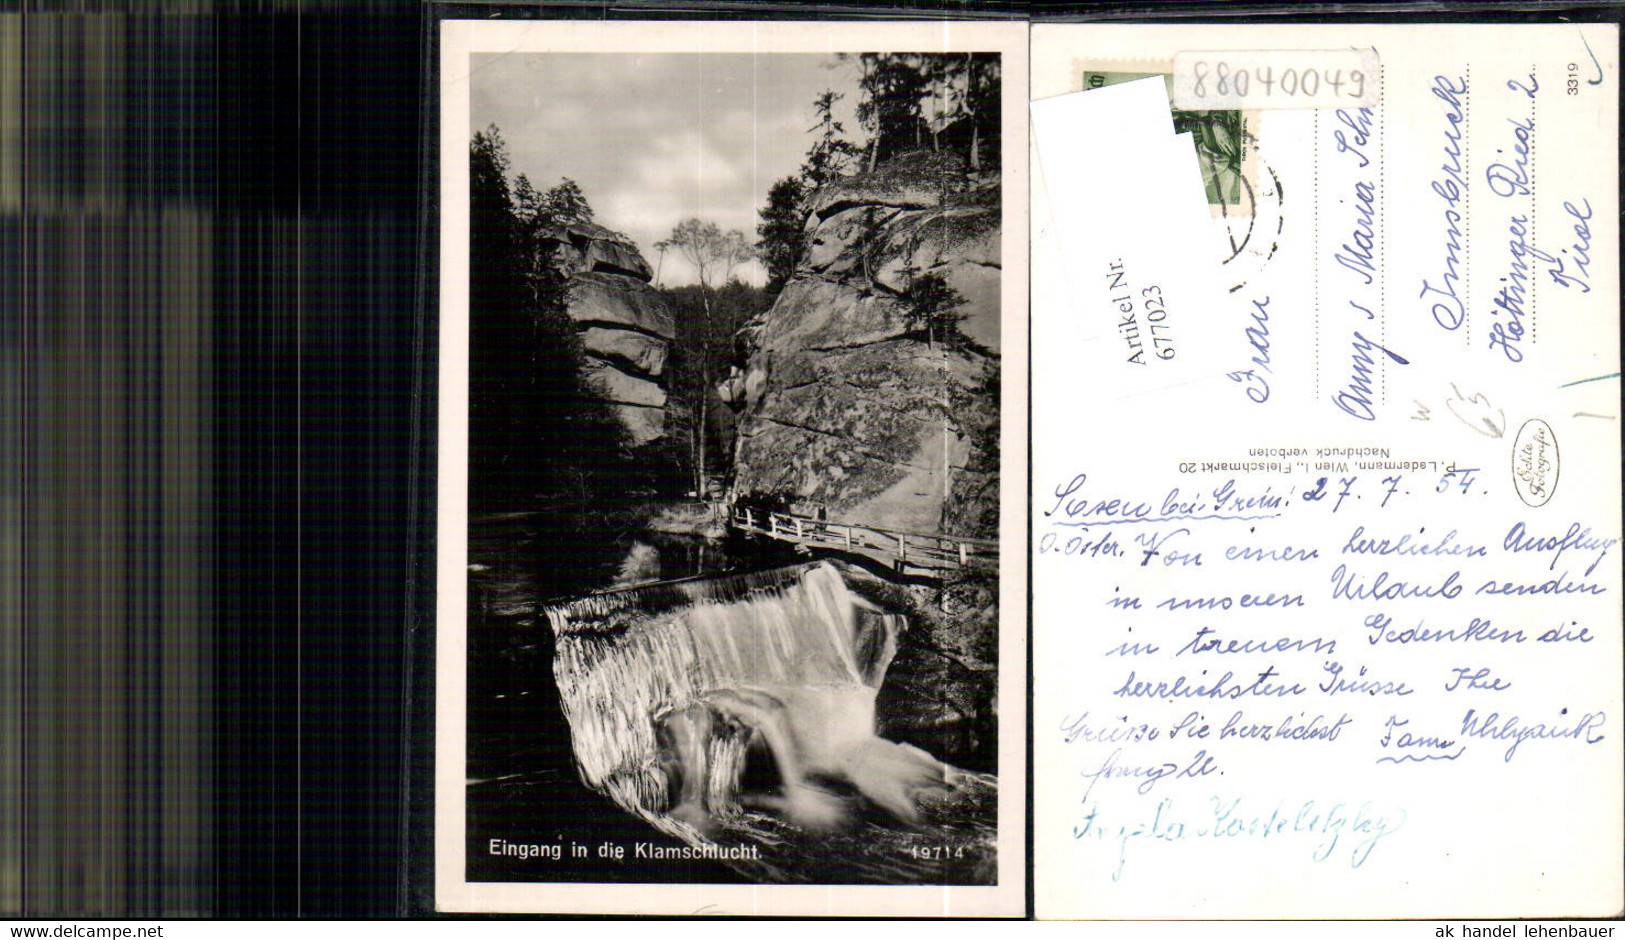 Eingang in die Klamschlucht.
19714
88040049
Artikel Nr.
677023
Frau
Anny Maria
Innsbruck
Höttinger Ried 2
Tirol
3319
W
65
P. Ledermann, Wien I., Fleischmarkt 20
Nachdruck verboten
Echte
Fotografie
bei Grein! 27. 7. 54.
O. Öster. Von einen herzlichen Ausflug
in unseren Urlaub senden
in treuem Gedenken die
herzlichsten Grüsse Ihre
Grüße Sie herzlichst Fam.
Angela
www.delcampe.net
ak handel lehenbauer